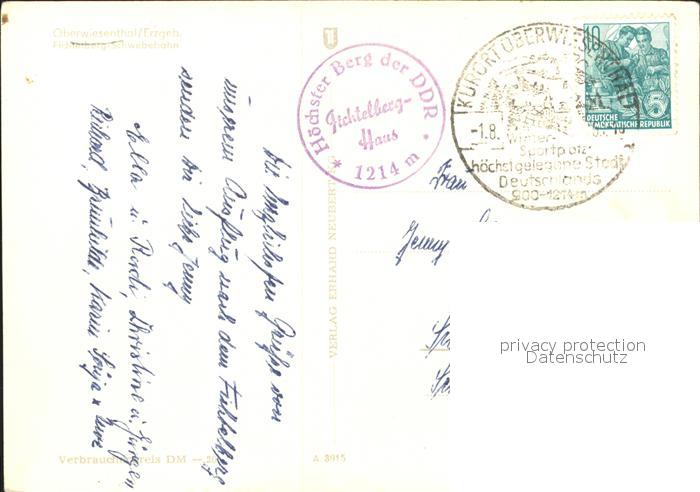 Oberwiesenthal/Erzgeb.
Fichtelberg-Schwebebahn
Die herzlichsten Grüße von
unserem Ausflug nach dem Fichtelberg
senden Dir liebe Jenny
Ella u. Rudi, Christine u. Jürgen
Brünhilde, Karin Sonja u. Uwe
Verbraucherpreis DM —
VERLAG ERHARD NEUBERT
A 3915
Höchster Berg der DDR
Fichtelberg-
Haus
* 1214 m *
KURORT OBERWIESENTHAL
-1.8.
Winter-
Sportplatz
höchstgelegene Stadt
Deutschlands
900-1214m
10
5
DEUTSCHE
DEMOKRATISCHE REPUBLIK
Frau
Jenny
privacy protection
Datenschutz